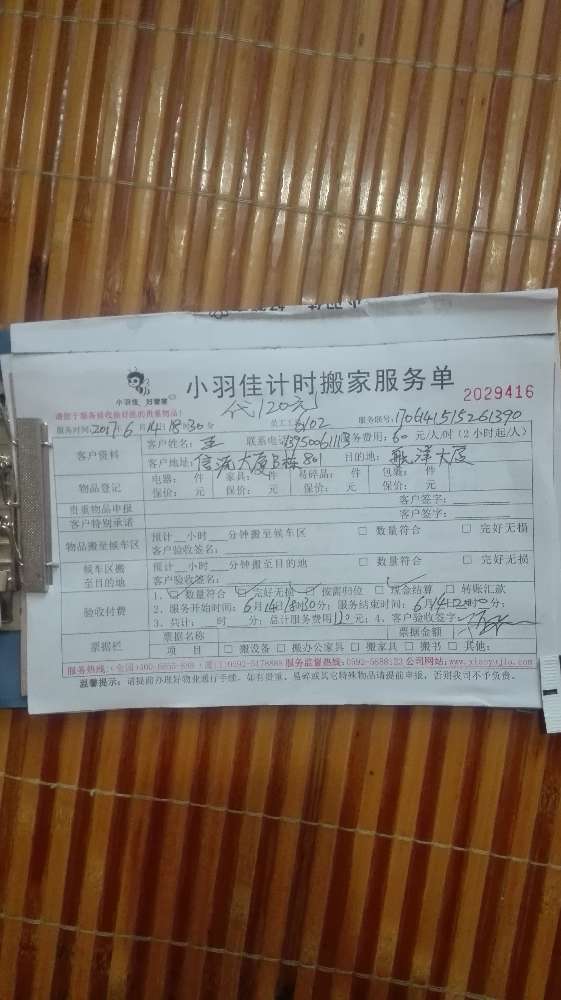 小羽佳 好管家
小羽佳计时搬家服务单
2029416
代120元
请您于服务前收捡好您的贵重物品!
服务时间:2017.6月14日18时30分 员工工号6102 服务联号:1706141515261390
客户资料 客户姓名:王 联系电话 服务费用:60元/人/时(2小时起/人)
客户地址:信源大厦B栋801 目的地:航洋大厦
物品登记 电器: 件 家具: 件 易碎品: 件 包裹: 件
保价: 元 保价: 元 保价: 元 保价: 元
贵重物品申报 客户签字:
客户特别承诺 客户签字:
物品搬至候车区 预计__小时__分钟搬至候车区 □ 数量符合 □ 完好无损
客户验收签名:
候车区搬至目的地 预计__小时__分钟搬至目的地 □ 数量符合 □ 完好无损
客户验收签名:
验收付费 1、☑ 数量符合 ☑ 完好无损 ☑ 按需归位 ☑ 现金结算 □ 转账汇款
2、服务开始时间:6月14日18时30分;服务结束时间:6月14日20时0分;
3、共计:__时__分;总计服务费用120元;4、客户验收签字:
票据栏 票据名称 票据金额
项 目 □ 搬设备 □ 搬办公家具 □ 搬家具 □ 搬书 □ 其他:
服务监督热线:0592-5688123 公司网站:www.xiaoyujia.com
温馨提示:请提前办理好物业通行手续。如有贵重、易碎或其它特殊物品请提前申报,否则我司不予负责。